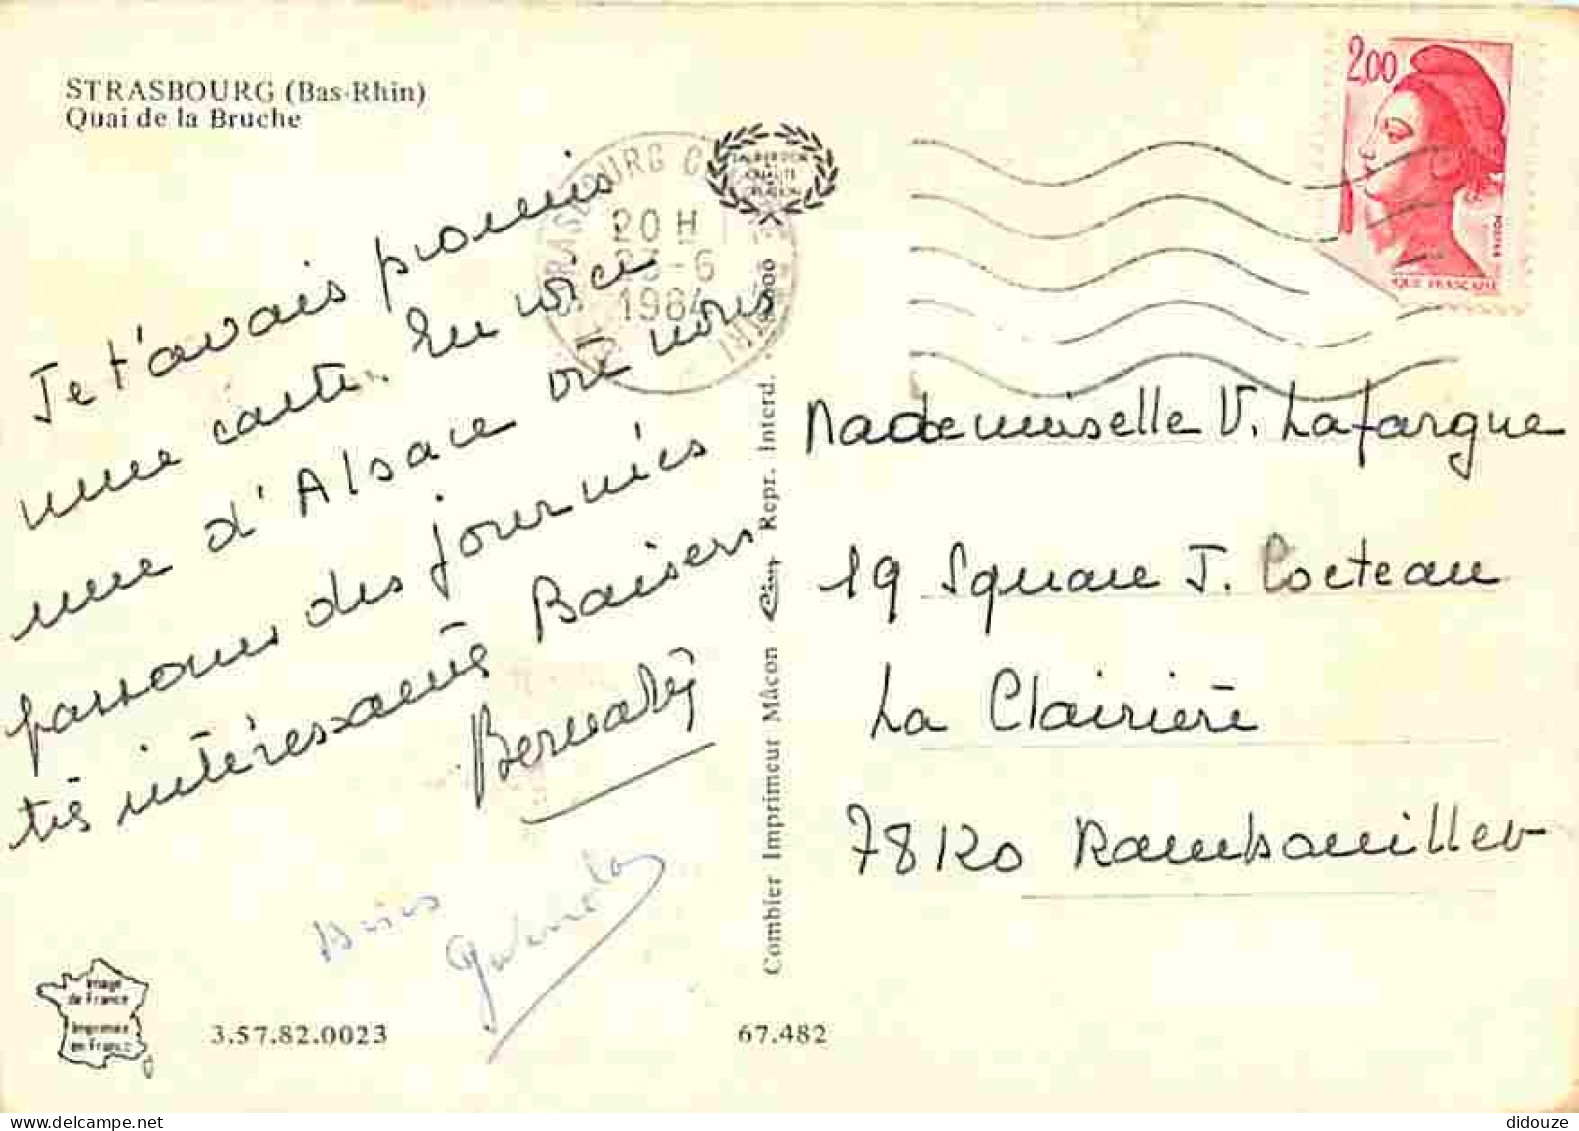 STRASBOURG (Bas-Rhin)
Quai de la Bruche
Je t'avais promis
une carte. En voici
une d'Alsace où nous
passons des journées
très intéressantes Baisers
20 H
-6
1984
2,00
Mademoiselle V. Lafargue
19 Square J. Cocteau
La Clairière
78120 Rambouillet
Combier Imprimeur Mâcon Cim Repr. Interd.
Image
de France
Imprimée
en France
3.57.82.0023
67.482
didouze